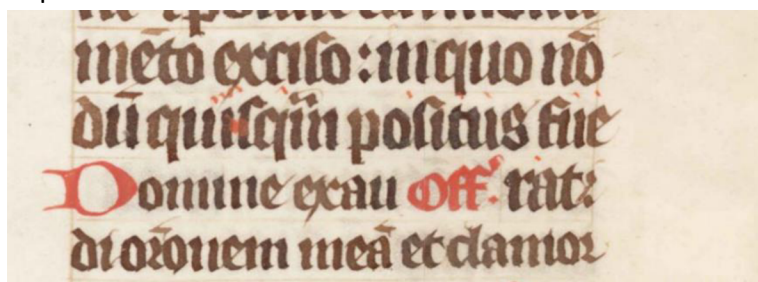 mēto exciſo : in quo nō
dū quiſq̄m poſitus fue
Domine exau Off. rat:
di orōnem meā et clamor